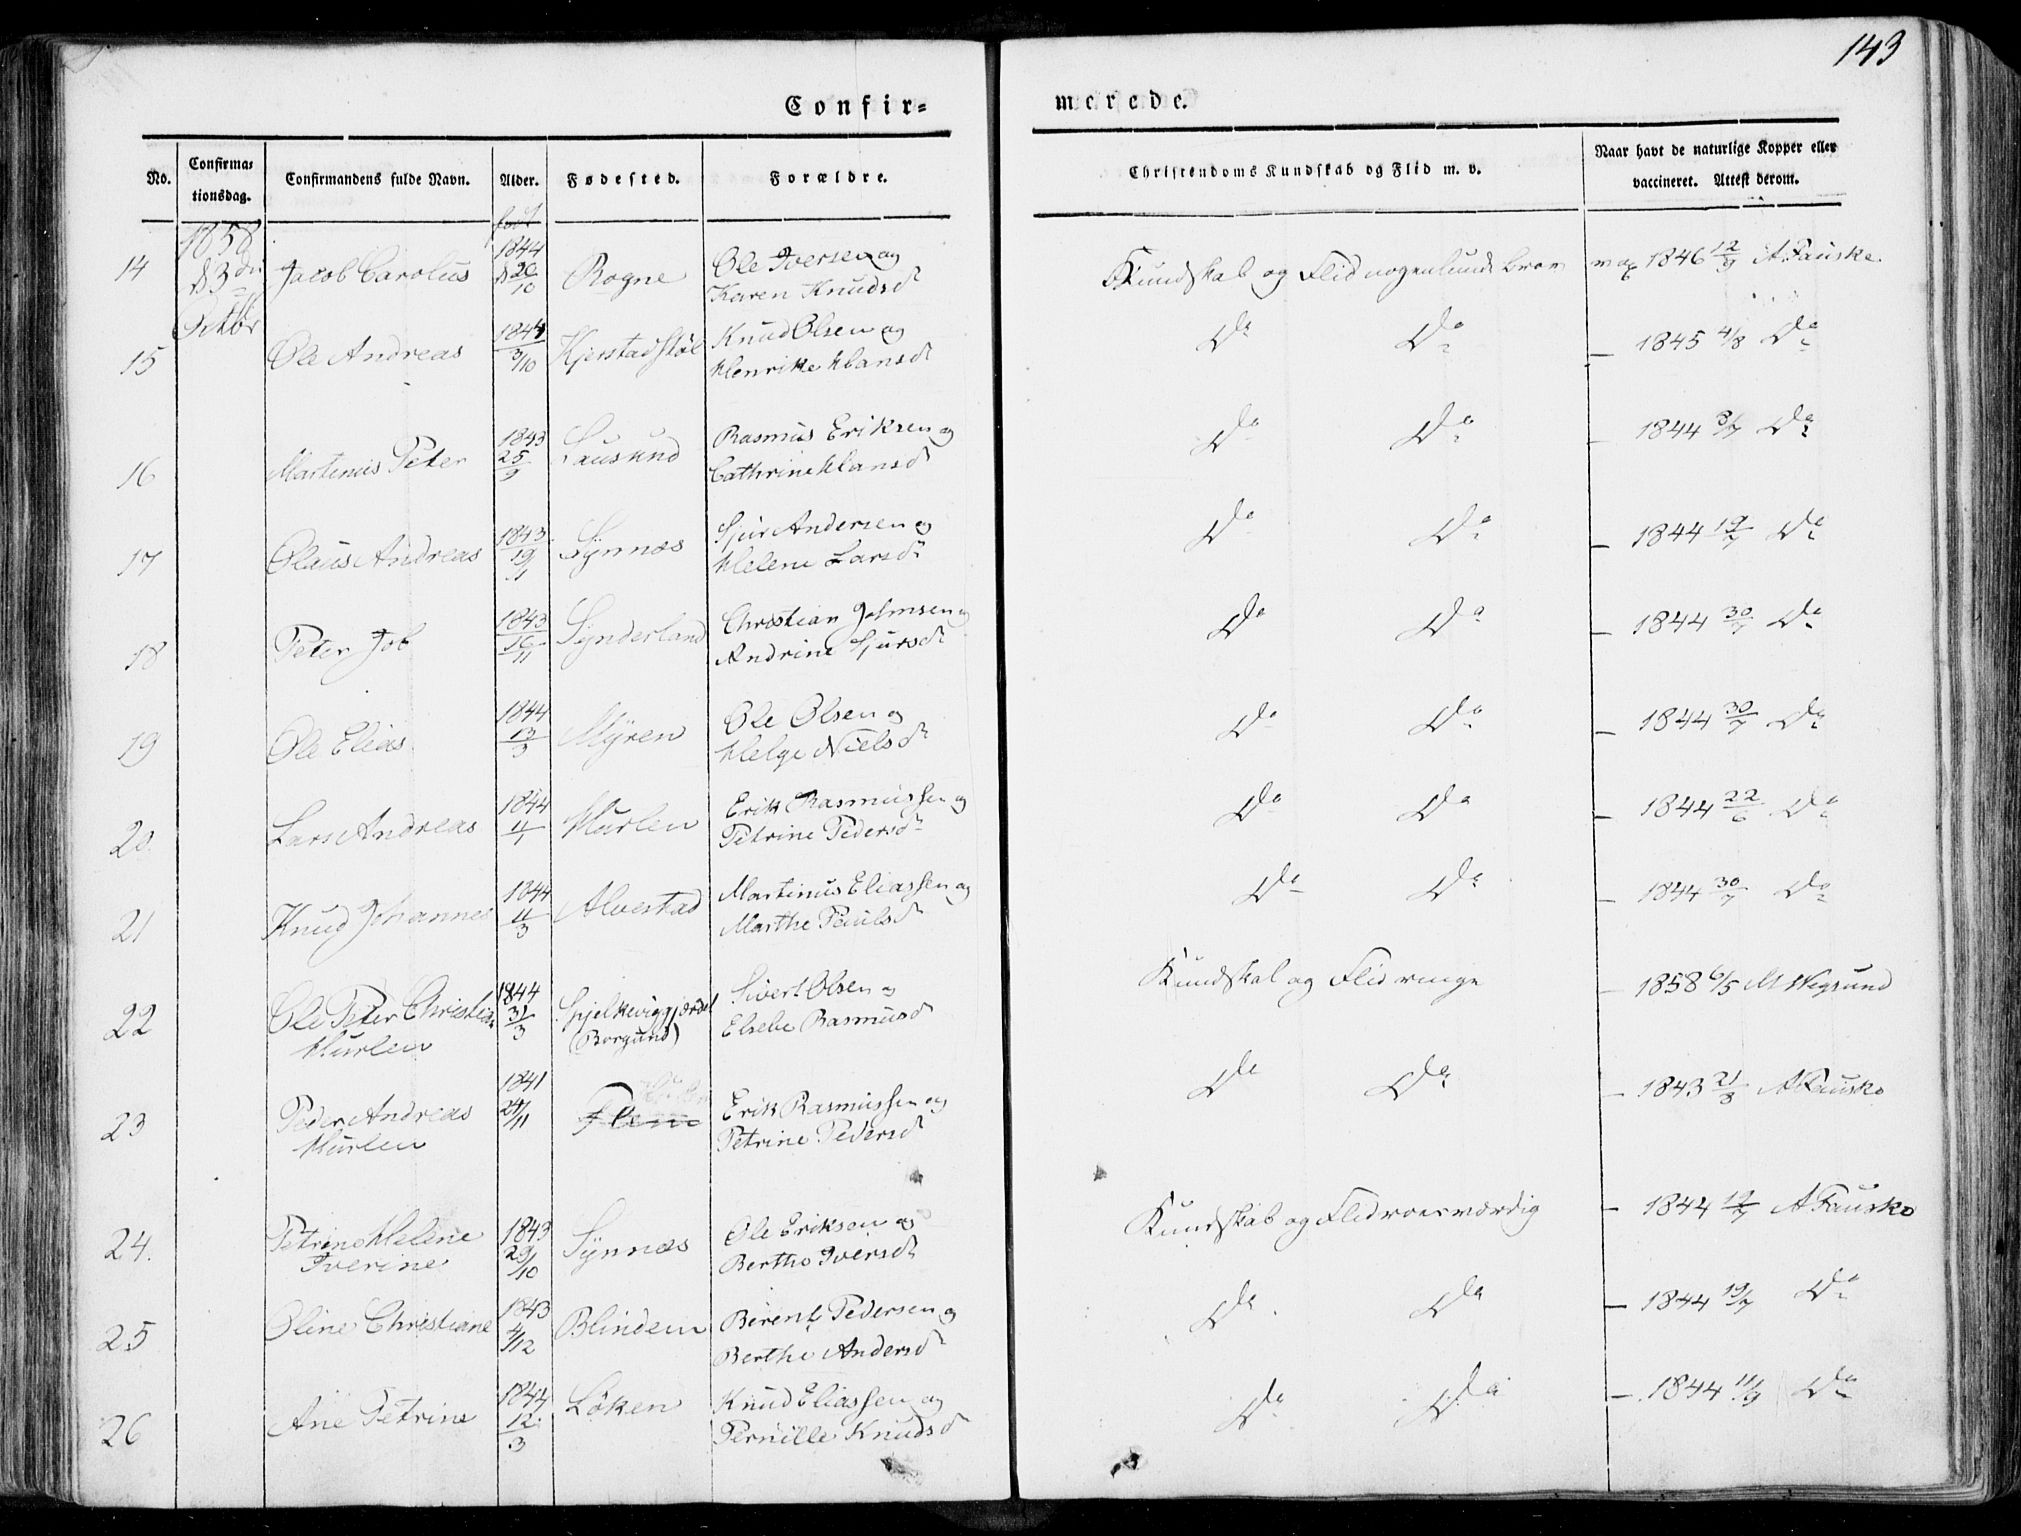 143
Confir=
merede.
No.
Confirma=
tionsdag.
Confirmandens fulde Navn.
Alder.
Fødested.
Forældre.
Christendoms Kundskab og Flid m. v.
Naar havt de naturlige Kopper eller
vaccineret. Attest derom.
født
14 1858 d 3die Octbr Jacob Carolus 1844 d 20/10 Rogne Ole Iversen og
Karen Knudsd Kundskab og Flid nogenlunde brav vax 1846 12/9 A. Fauske.
15 Ole Andreas 1844 3/10 Kjerstadstøl Knud Olsen og
Henrike Hansd Do Do — 1845 4/8 Do
16 Martinus Peter 1843 25/9 Lausund Rasmus Eriksen og
Cathrine Hansd Do Do — 1844 3/7 Do
17 Olaus Andreas 1843 19/1 Synnæs Sjur Andersen og
Helene Larsd Do Do — 1844 19/7 Do
18 Peter Job 1843 16/11 Synderland Christian Johnsen og
Andrine Sjursd Do Do — 1844 30/7 Do
19 Ole Elias 1844 13/3 Myren Ole Olsen og
Helge Nielsd Do Do — 1844 30/7 Do
20 Lars Andreas 1844 4/1 Hurlen Erik Rasmussen og
Petrine Pedersd Do Do — 1844 22/6 Do
21 Knud Johannes 1844 11/3 Alvestad Martinus Eliassen og
Marthe Paulsd Do Do — 1844 30/7 Do
22 Ole Peter Christian
Hurlen 1844 31/3 Spjelkeviggjerdet
(Borgund) Sivert Olsen og
Elsebe Rasmusd Kundskab og Flid ringe — 1858 6/5 M Wegsund
23 Peder Andreas
Hurlen 1841 24/11 Flem Erik Rasmussen og
Petrine Pedersd Do Do — 1843 21/8 A Fauske
24. Petrine Helene
Iverine 1843 29/10 Synnæs Ole Eriksen og
Berthe Iversd Kundskab og Flid roesværdig — 1844 19/7 A Fauske
25 Oline Christiane 1843 4/12 Blindem Berent Pedersen og
Berthe Andersd Do Do — 1844 19/7 Do
26 Ane Petrine 1844 12/3 Løken Knud Eliassen og
Pernille Knudsd Do Do — 1844 11/9 Do